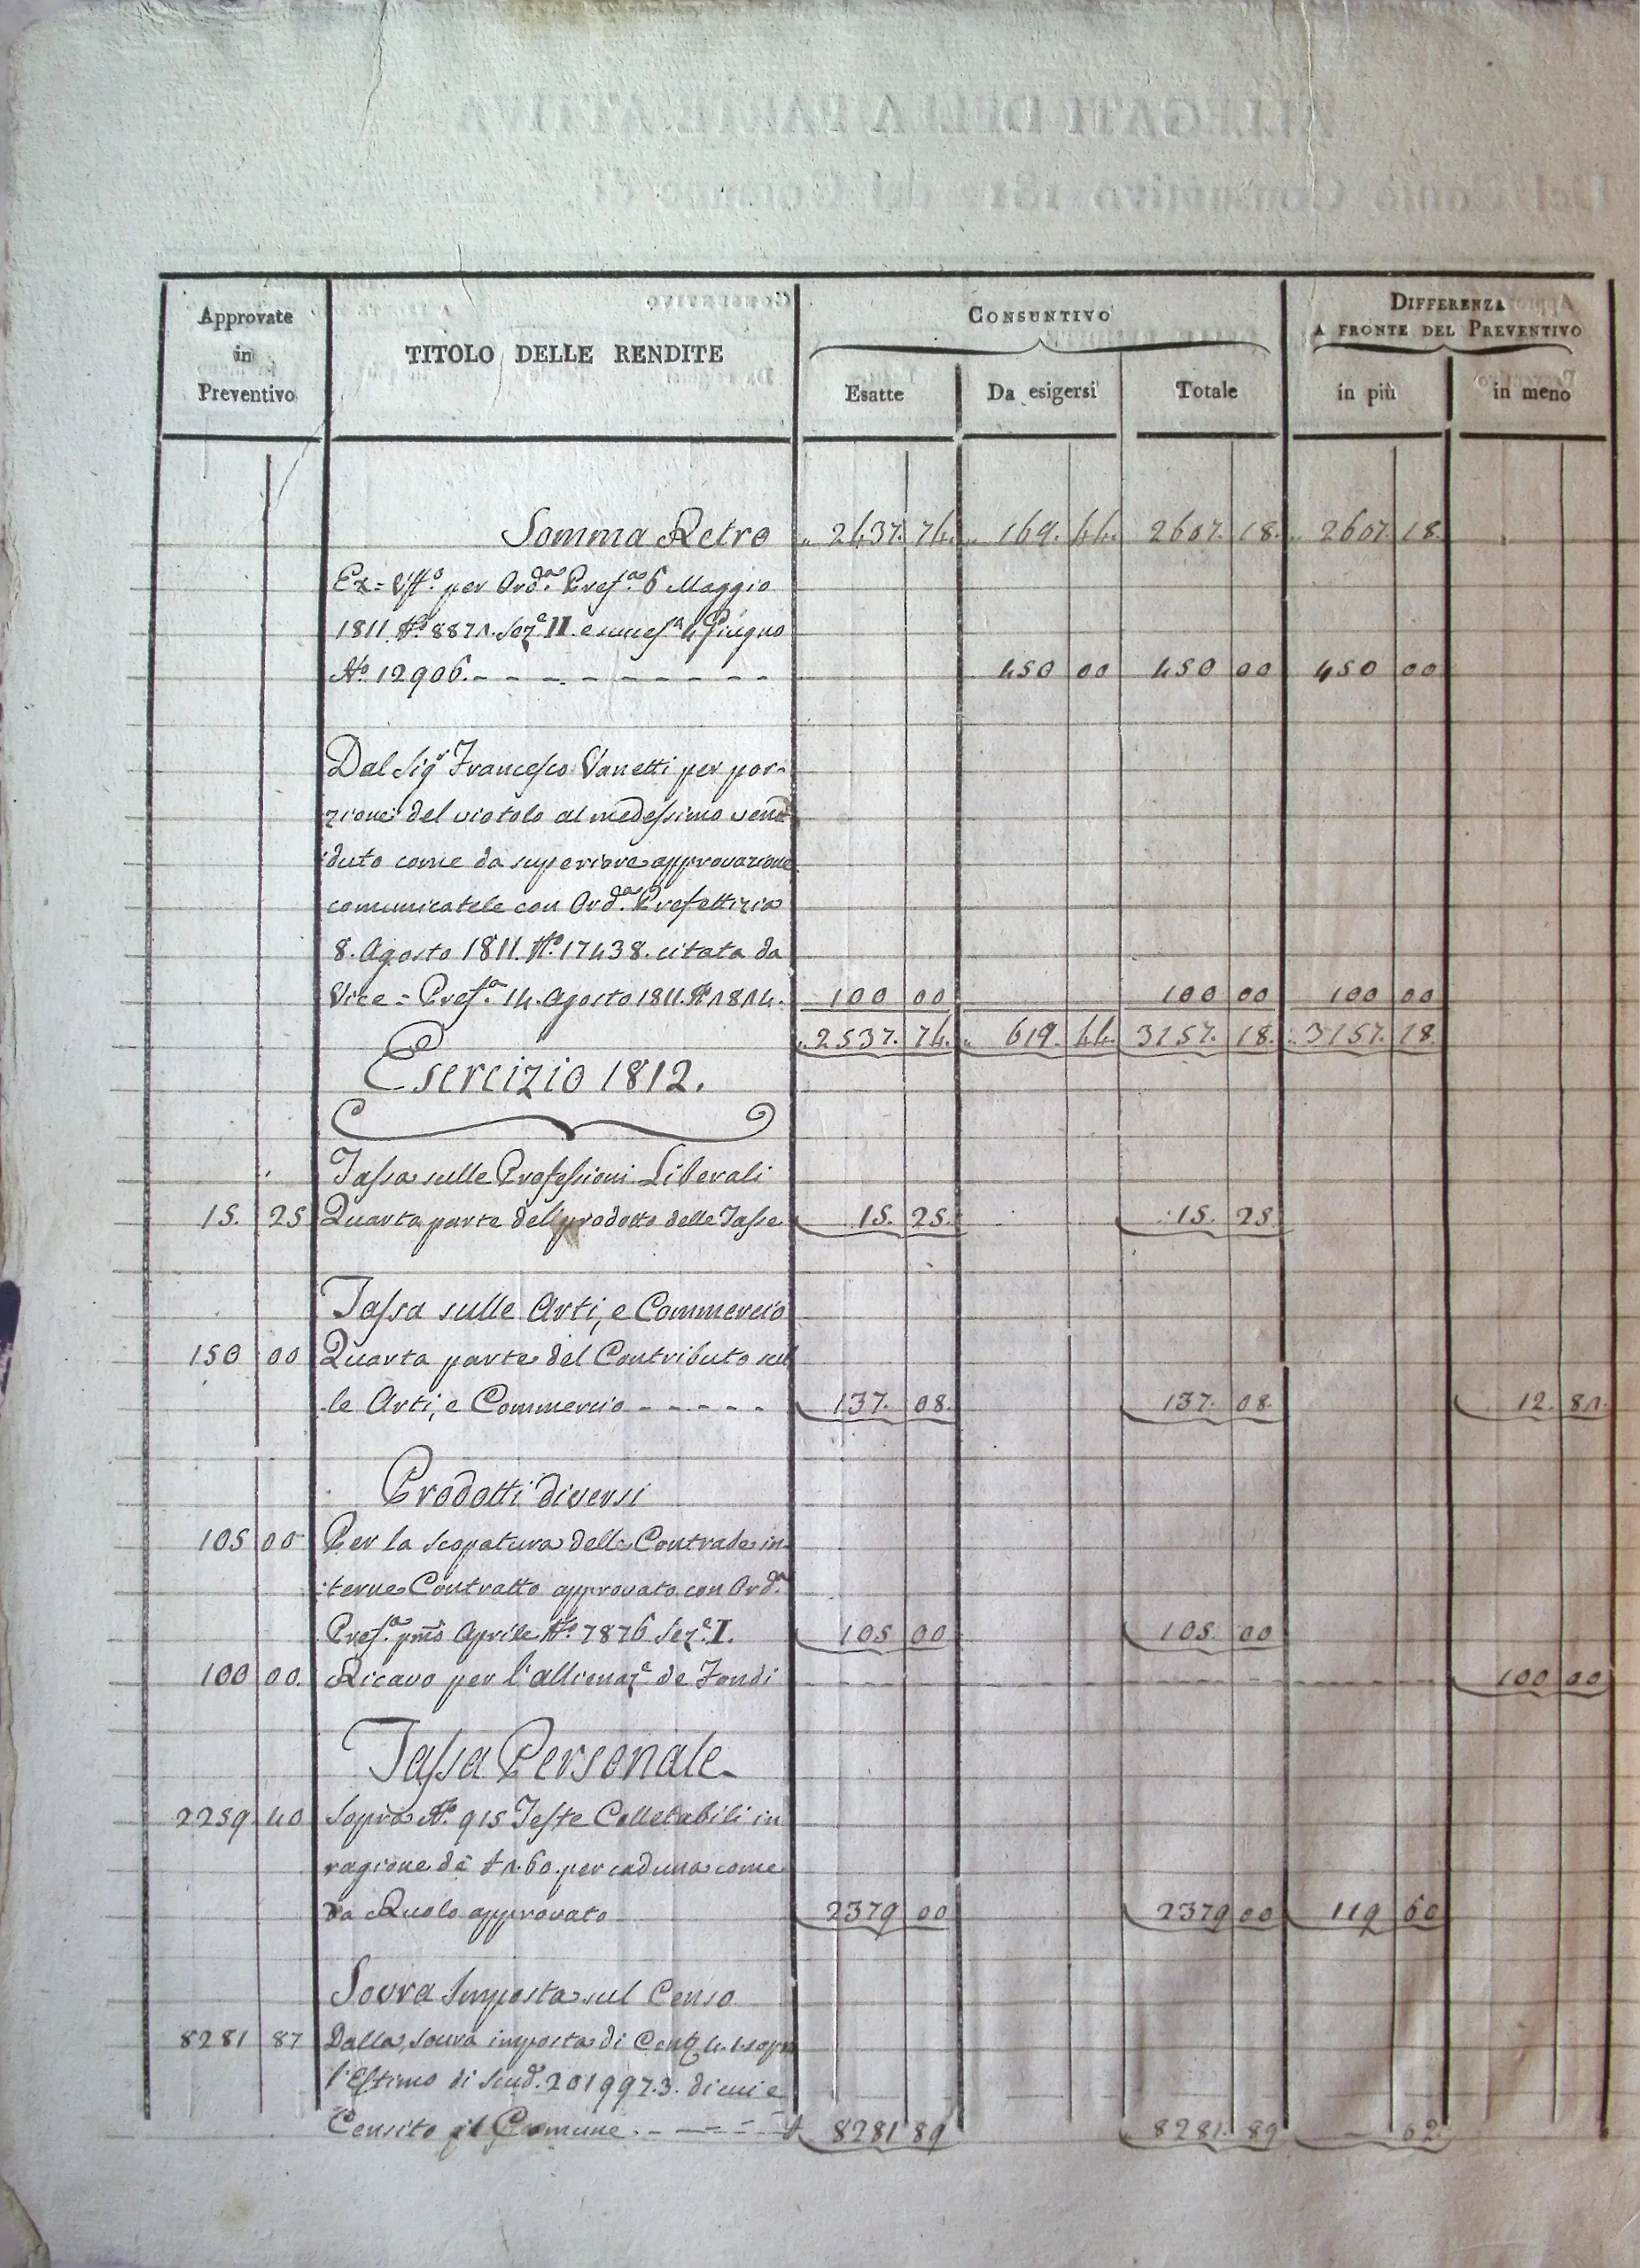 Approvate in Preventivo
TITOLO DELLE RENDITE
CONSUNTIVO
DIFFERENZA
A FRONTE DEL PREVENTIVO
Esatte Da esigersi Totale in più in meno
Somma Retro „ 2437. 74. „ 169. 44. 2607. 18. „ 2607. 18.
Ex=Uff.o per Ord.a Pref.a 6 Maggio
1811. N.o 8871. Sez.e II. e succes.a 4 Giugno
N.o 12906. - - - - - - - - 450 00 450 00 450 00
Dal Sig.r Francesco Vanetti per por-
zione del viotolo al medessimo vend
duto come da superiore approvazione
comunicatele con Ord.a Prefettizia
8. Agosto 1811. N.o 17438. citata da
Vice=Pref.a 14. Agosto 1811. N.o 1814. 100 00 100 00 100 00
„ 2537. 74. „ 619. 44. 3157. 18. „ 3157. 18.
Esercizio 1812.
Tassa sulle Professioni Liberali
15. 25 Quarta parte del prodotto delle Tasse 15. 25. 15. 25
Tassa sulle Arti, e Commercio
150 00 Quarta parte del Contributo sul
le Arti, e Commercio - - - - - 137. 08. 137. 08. 12. 81.
Prodotti diversi
105 00 Per la scopatura delle Contrade in
terne Contratto approvato con Ord.a
Pref.a pmo Aprile N.o 7876 Sez.e I. 105 00 105 00
100 00. Ricavo per l'allienaz.e de Fondi 100 00
Tassa Personale
2259 40 Sopra N.o 915 Teste Colletabili in
ragione di £ 2.60. per caduna come
da Ruolo approvato 2379 00 2379 00 119 60
Sovra Imposta sul Censo
8281 87 Dalla sovra imposta di Cent. 4.1. sopra
l'Estimo di Scud. 201997.3. di cui è
Censito il Comune. - - - - - 8281 89 8281. 89 - 62.